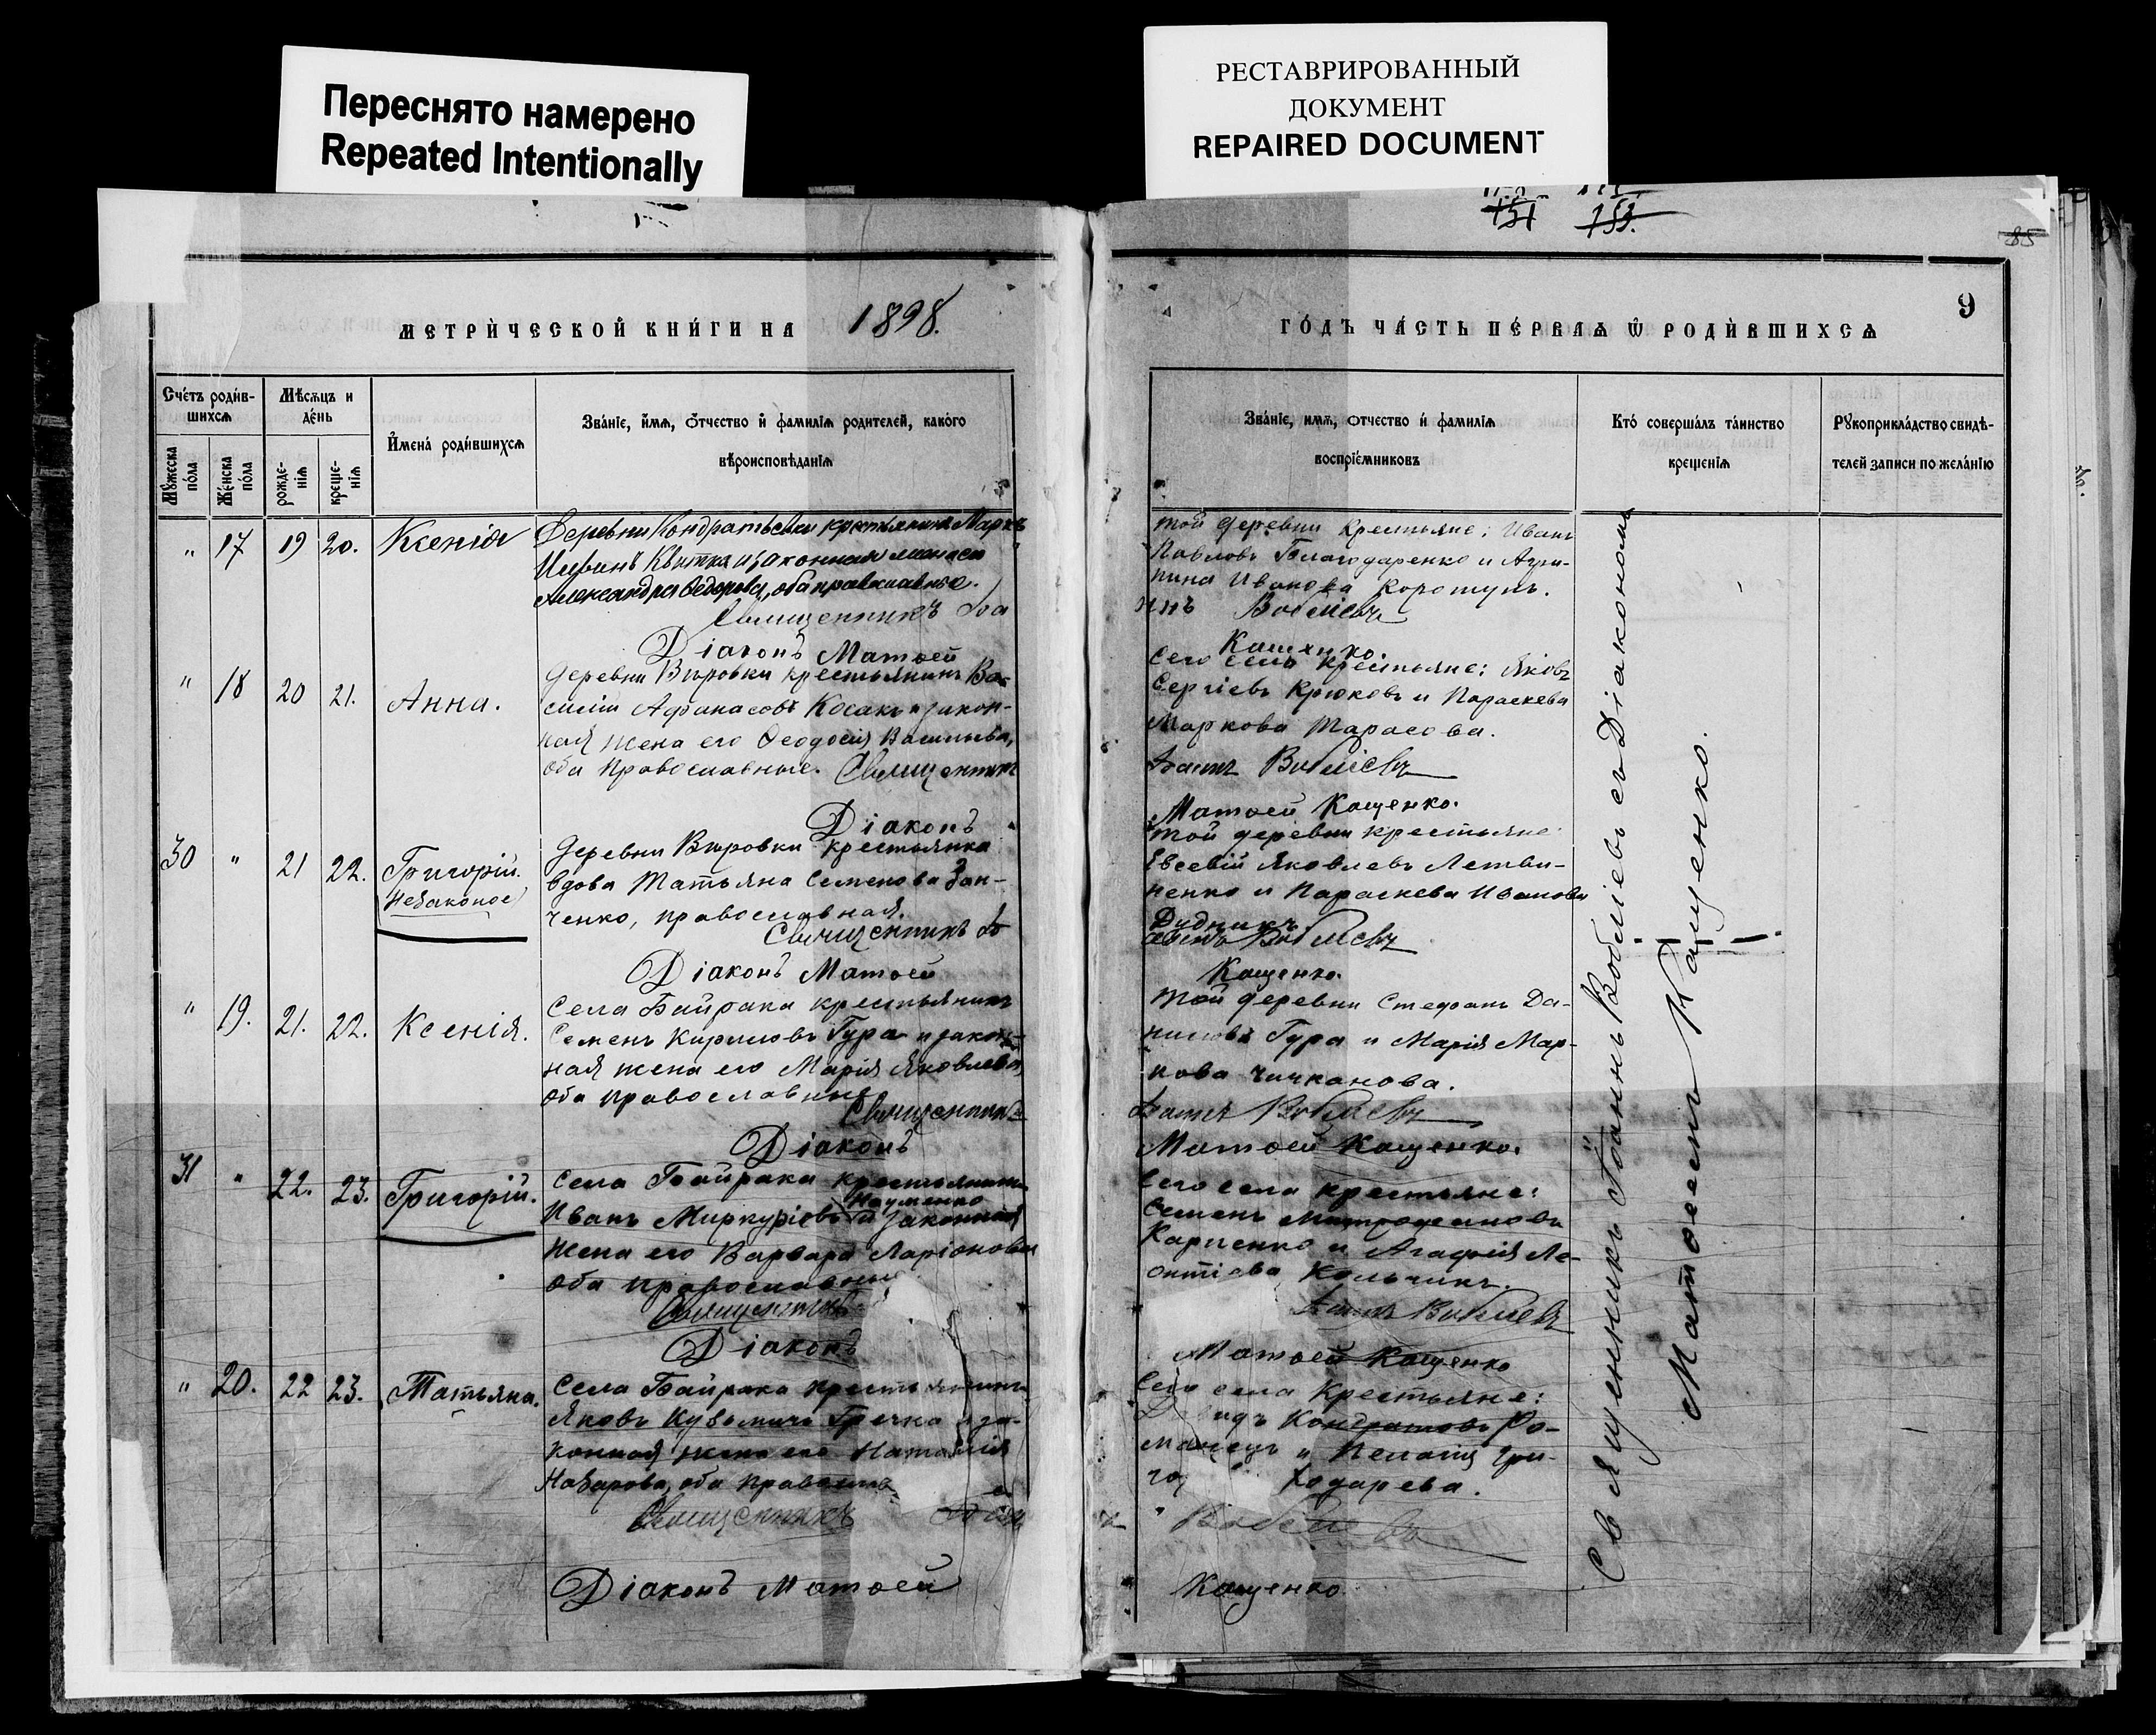 Переснято намерено
Repeated Intentionally
РЕСТАВРИРОВАННЫЙ
ДОКУМЕНТ
REPAIRED DOCUMENT
151 153.
85
9
МЕТРИ́ЧЕСКОЙ КНИ́ГИ НА 1898.
ГО́ДЪ ЧА́СТЬ ПЕ́РВАѦ Ѿ РОДИ́ВШИХСѦ
Сче́тъ роди́в-
шихсѧ
Мѣ́сѧцъ и
де́нь
Мꙋ́жеска
по́ла
Же́нска
по́ла
рожде́-
нїѧ
креще́-
нїѧ
И҆мена̀ роди́вшихсѧ
Зва́нїе, и҆́мѧ, ѻ҆́тчество и҆ фами́лїѧ роди́телей, како́го
вѣроисповѣ́данїѧ
Зва́нїе, и́мѧ, ѻтчество и́ фами́лїѧ
воспрїе́мниковъ
Кто́ соверша́лъ та́инство
креще́нїѧ
Рꙋкоприкла́дство свидѣ́-
телей записи по жела́нїю
" 17 19 20. Ксенія
Деревни Кондратьевки крестьянинъ Маркъ
Квитка и законная жена его
Александра Ѳедорова, оба православные.
Священникъ Іоа
Діаконъ Матѳей
той деревни крестьяне: Иванъ
Павловъ Благодаренко и Агри-
пина Иванова Коротунъ.
ннъ
Кащенко.
" 18 20 21. Анна.
деревни Вировки крестьянинъ Ва-
силій Афанасовъ Косакъ и закон-
ная жена его Ѳеодосія Васильева,
оба православные. Священникъ
Діаконъ
Сего села крестьяне: Яковъ
Сергіевъ Крюковъ и Параскева
Маркова Тарасова.
Іоаннъ
Матѳей Кащенко.
30 " 21 22. Григорій.
незаконое
деревни Вировки крестьянка
вдова Татьяна Семенова Зан-
ченко, православная.
Священникъ Іо
Діаконъ Матѳей
той деревни крестьяне:
Евсевій Яковлевъ Летви-
ненко и Параскева Иванова
Дудникъ.
аннъ
Кащенко.
" 19. 21. 22. Ксенія.
Села Байрака крестьянинъ
Семенъ Кириловъ Гура и закон-
ная жена его Марія Яковлева,
оба православные
Священникъ
Діаконъ
той деревни Стефанъ Да-
ниловъ Гура и Марія Мар-
кова Чичканова.
Іоаннъ
Матѳей Кащенко.
31 " 22. 23. Григорій.
Села Байрака крестьянинъ
Науменко
Иванъ Миркуріевъ и законная
жена его Варвара Ларіонова
оба православные
Священникъ
Діаконъ
Сего села крестьяне:
Семенъ Митрофановъ
Карпенко и Агафія Ле-
онтіева Кольчикъ.
Іоаннъ
Матѳей Кащенко
" 20. 22 23. Татьяна.
Села Байрака крестьянинъ
Яковъ Кузьмичъ Гречка и за-
конная жена его Наталія
Назарова, оба православ
Священникъ
Діаконъ Матѳей
Сего села Крестьяне:
Кондратовъ Ро-
манецъ и Пелагія Гри-
го
Кащенко.
Священникъ Іоаннъ съ Діакономъ
Матѳеемъ Кащенко.